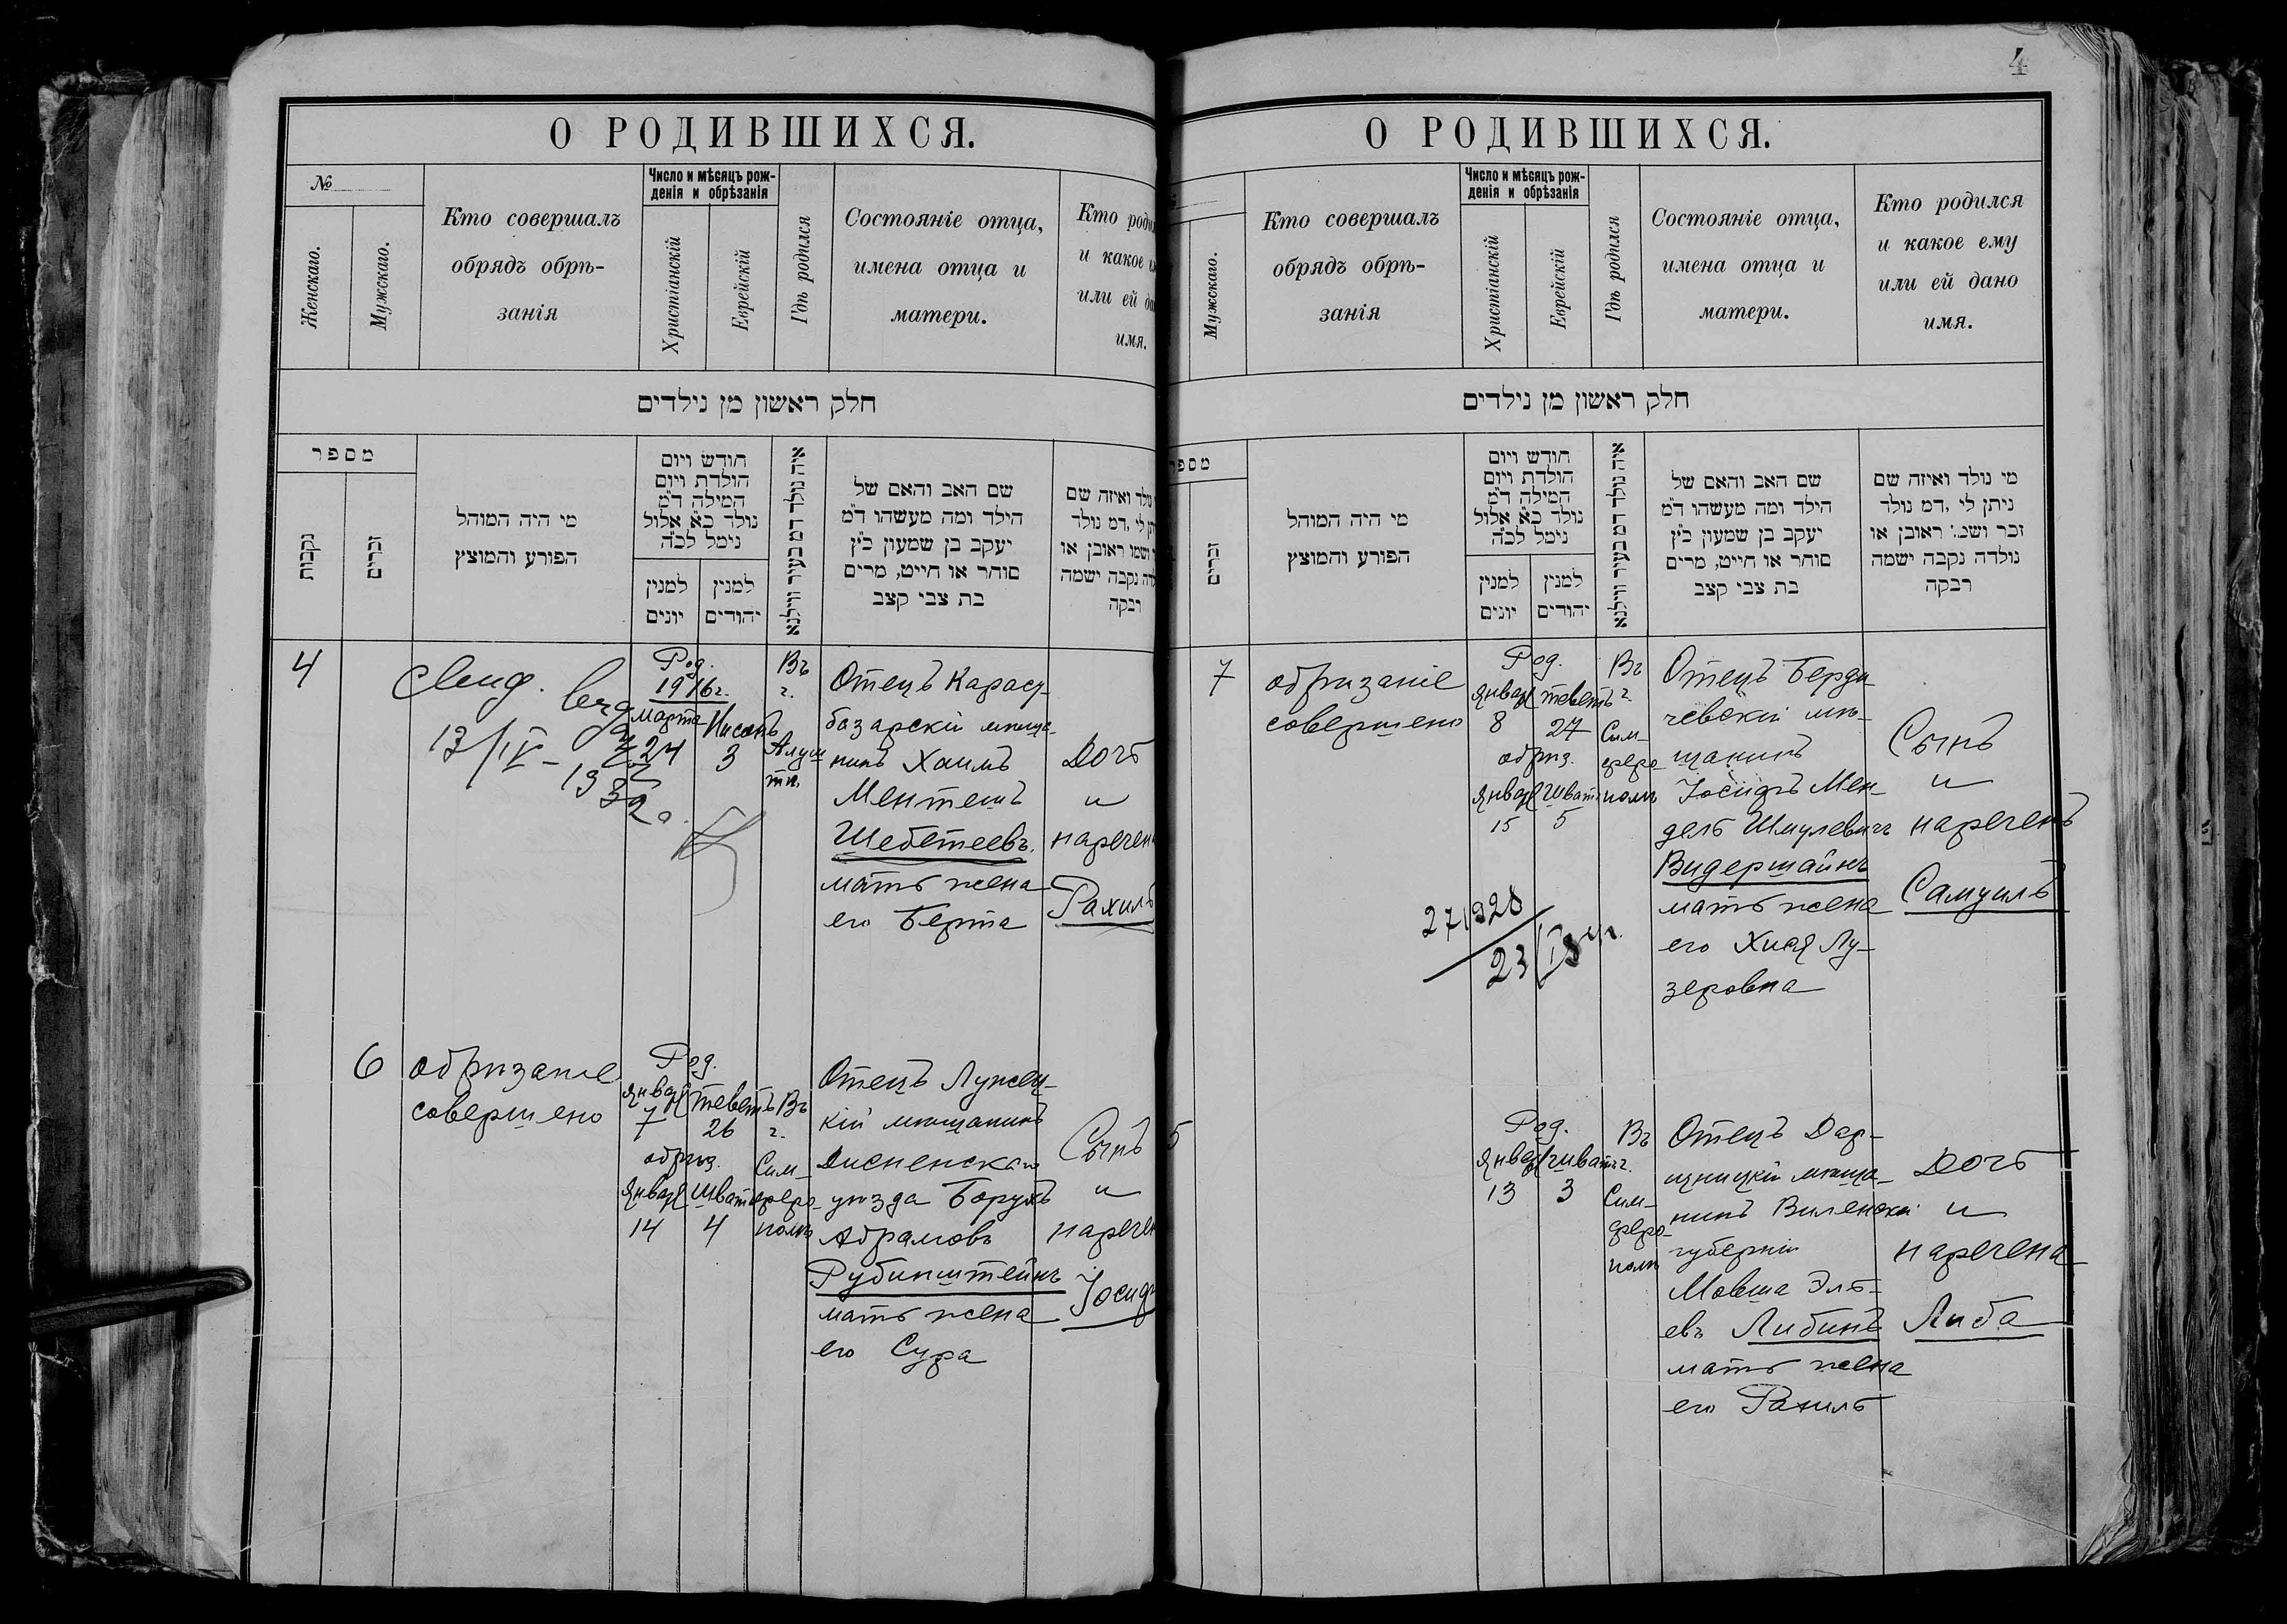 О РОДИВШИХСЯ.
№
Женскаго.
Мужскаго.
Кто совершалъ
обрядъ обрѣ-
занія
Число и мѣсяцъ рож-
денія и обрѣзанія
Христіанскій
Еврейскій
Гдѣ родился
Состояніе отца,
имена отца и
матери.
Кто роди
и какое
или ей
имя.
חלק ראשון מן נילדים
מספר
נקבות
זכרים
מי היה המוהל
הפורע והמוצץ
חודש ויום
הולדת ויום
המילה ד״מ
נולד כ״א אלול
נימל לכ״ה
למנין
יונים
למנין
יהודים
איה נולד דמ בעיר ווילנא
שם האב והאם של
הילד ומה מעשהו ד״מ
יעקב בן שמעון כ״ץ
סוחר או חייט, מרים
בת צבי קצב
נולד ואיזה שם
לי, דמ נולד
ושמו ראובן או
נקבה ישמה
רבקה
4
13/IV-
1932
Род.
1916г.
марта
24
Нисанъ
3
Въ
г.
Алуш
тѣ.
Отецъ Карасу-
базарскій мѣща-
нинъ Хаимъ
Ментешъ
Шебетеевъ.
мать жена
его Берта
Дочь
и
наречен
Рахиль
6
обрѣзаніе
совершено
Род.
Января
7
Теветъ
26
обрѣз.
Января
14
Шватъ
4
Въ
г.
Сим-
феро-
полѣ
Отецъ Лужец-
кій мѣщанинъ
Дисненскаго
уѣзда Борухъ
Абрамовъ
Рубинштейнъ
мать жена
его Сура
Сынъ
и
наречен
Іосиф
4
О РОДИВШИХСЯ.
Мужскаго.
Кто совершалъ
обрядъ обрѣ-
занія
Число и мѣсяцъ рож-
денія и обрѣзанія
Христіанскій
Еврейскій
Гдѣ родился
Состояніе отца,
имена отца и
матери.
Кто родился
и какое ему
или ей дано
имя.
חלק ראשון מן נילדים
מספר
זכרים
מי היה המוהל
הפורע והמוצץ
חודש ויום
הולדת ויום
המילה ד״מ
נולד כ״א אלול
נימל לכ״ה
למנין
יונים
למנין
יהודים
איה נולד דמ בעיר ווילנא
שם האב והאם של
הילד ומה מעשהו ד״מ
יעקב בן שמעון כ״ץ
סוחר או חייט, מרים
בת צבי קצב
מי נולד ואיזה שם
ניתן לי, דמ נולד
זכר ושמו ראובן או
נולדה נקבה ישמה
רבקה
7
обрѣзаніе
совершено
Род.
Января
8
Теветъ
27
обрѣз.
Января
15
Шватъ
5
Въ
г.
Сим-
феро-
полѣ
Отецъ Берди-
чевскій мѣ-
щанинъ
Іосифъ Мен-
дель Шмулевичъ
Видершайнъ
мать жена
его Хися Лу-
зеровна
Сынъ
и
нареченъ
Самуилъ
5
Род.
Января
13
Шватъ
3
Въ
г.
Сим-
феро-
полѣ
Отецъ Дар-
мѣща-
нинъ Виленской
губерніи
Мовша Эль-
евъ Либинъ
мать жена
его Рахиль
Дочь
и
наречена
Либа